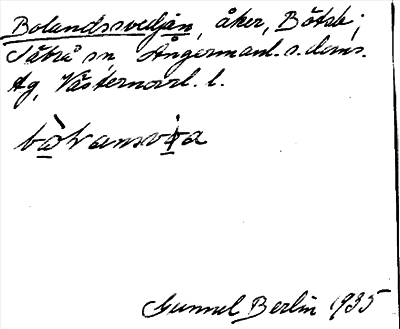 Bolandssvedjan, åker, Båtsb;
Säbrå sn, Ångermanl. s. doms.
tg, Västernorrl. l.
Gunnel Berlin 1935